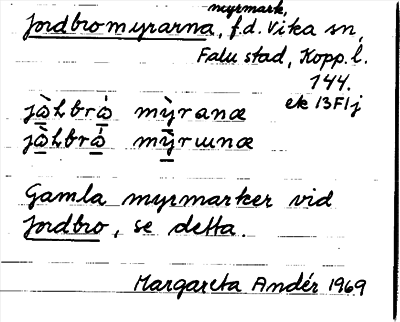 myrmark,
Jordbromyrarna, f.d. Vika sn,
Falu stad, Kopp. l.
144.
ek 13F1j
mỳranæ
mỳrɯnæ
Gamla myrmarker vid
Jordbro, se detta.
Margareta Andér 1969